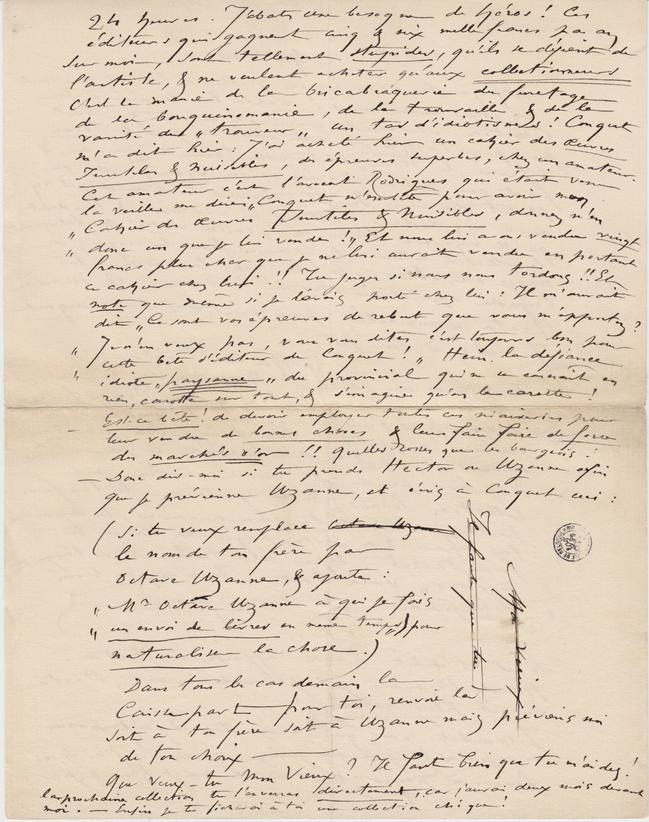 24 heures. J'abats une besogne de héros ! Ces
éditeurs qui gagnent cinq & six mille francs par an
sur moi, sont tellement stupides, qu'ils se défient de
l'artiste, & ne veulent acheter qu'aux collectionneurs
C'est la manie de la bricabraquerie du furetage
de la bouquinomanie, de la trouvaille & de la
vanité du „trouveur„ un tas d'idiotismes ! Conquet
m'a dit hier : J'ai acheté hier un cahier des œuvres
Inutiles & Nuisibles, des épreuves superbes, chez un amateur.
Cet amateur c'est l'avocat Rodrigues qui était venu
la veille me dire, Conquet m'embête pour avoir mon
„ Cahier des œuvres Inutiles & Nuisibles, donnez m'en
„ donc un que je lui vende !„ Et nous lui avons vendu vingt
francs plus cher que je ne lui aurait vendu en portant
ce cahier chez lui !! Tu juges si nous nous tordons !! Et
note que même si je l'avais porté chez lui : Il m'aurait
dit „Ce sont vos épreuves de rebut que vous m'apportez ?
„ Je n'en veux pas, vous vous dites c'est toujours bon pour
„ cette bête d'éditeur de Conquet !„ Hein la défiance
„ idiote „paysanne„ du provincial qui ne se connait en
rien, carotte sur tout, & s'imagine qu'on le carotte !
— Est-ce bête ! de devoir employer toutes ces niaiseries pour
leur vendre de bonnes choses & leur faire faire de force
des marchés d'or !! Quelles roses que les bourgeois !
— Donc dis-moi si tu prends Hector ou Uzanne afin
que je prévienne Uzanne, et écris à Conquet ceci :
(Si tu veux remplace Uzanne
le nom de ton frère par
Octave Uzanne, & ajoute :
„ Mr Octave Uzanne à qui je fais
„ un envoi de livres en même temps„) pour
naturaliser la chose.)
Dans tous les cas demain la
Caisse part pour toi, renvoie la
soit à ton frère soit à Uzanne mais préviens moi
de ton choix —
Que veux-tu mon Vieux ? Il faut bien que tu m'aides !
la prochaine collection tu l'enverras directement, car j'aurai deux mois devant
moi. — Enfin je te ficherai à toi une collection chique !
Il faut que tu
Mon Vieux